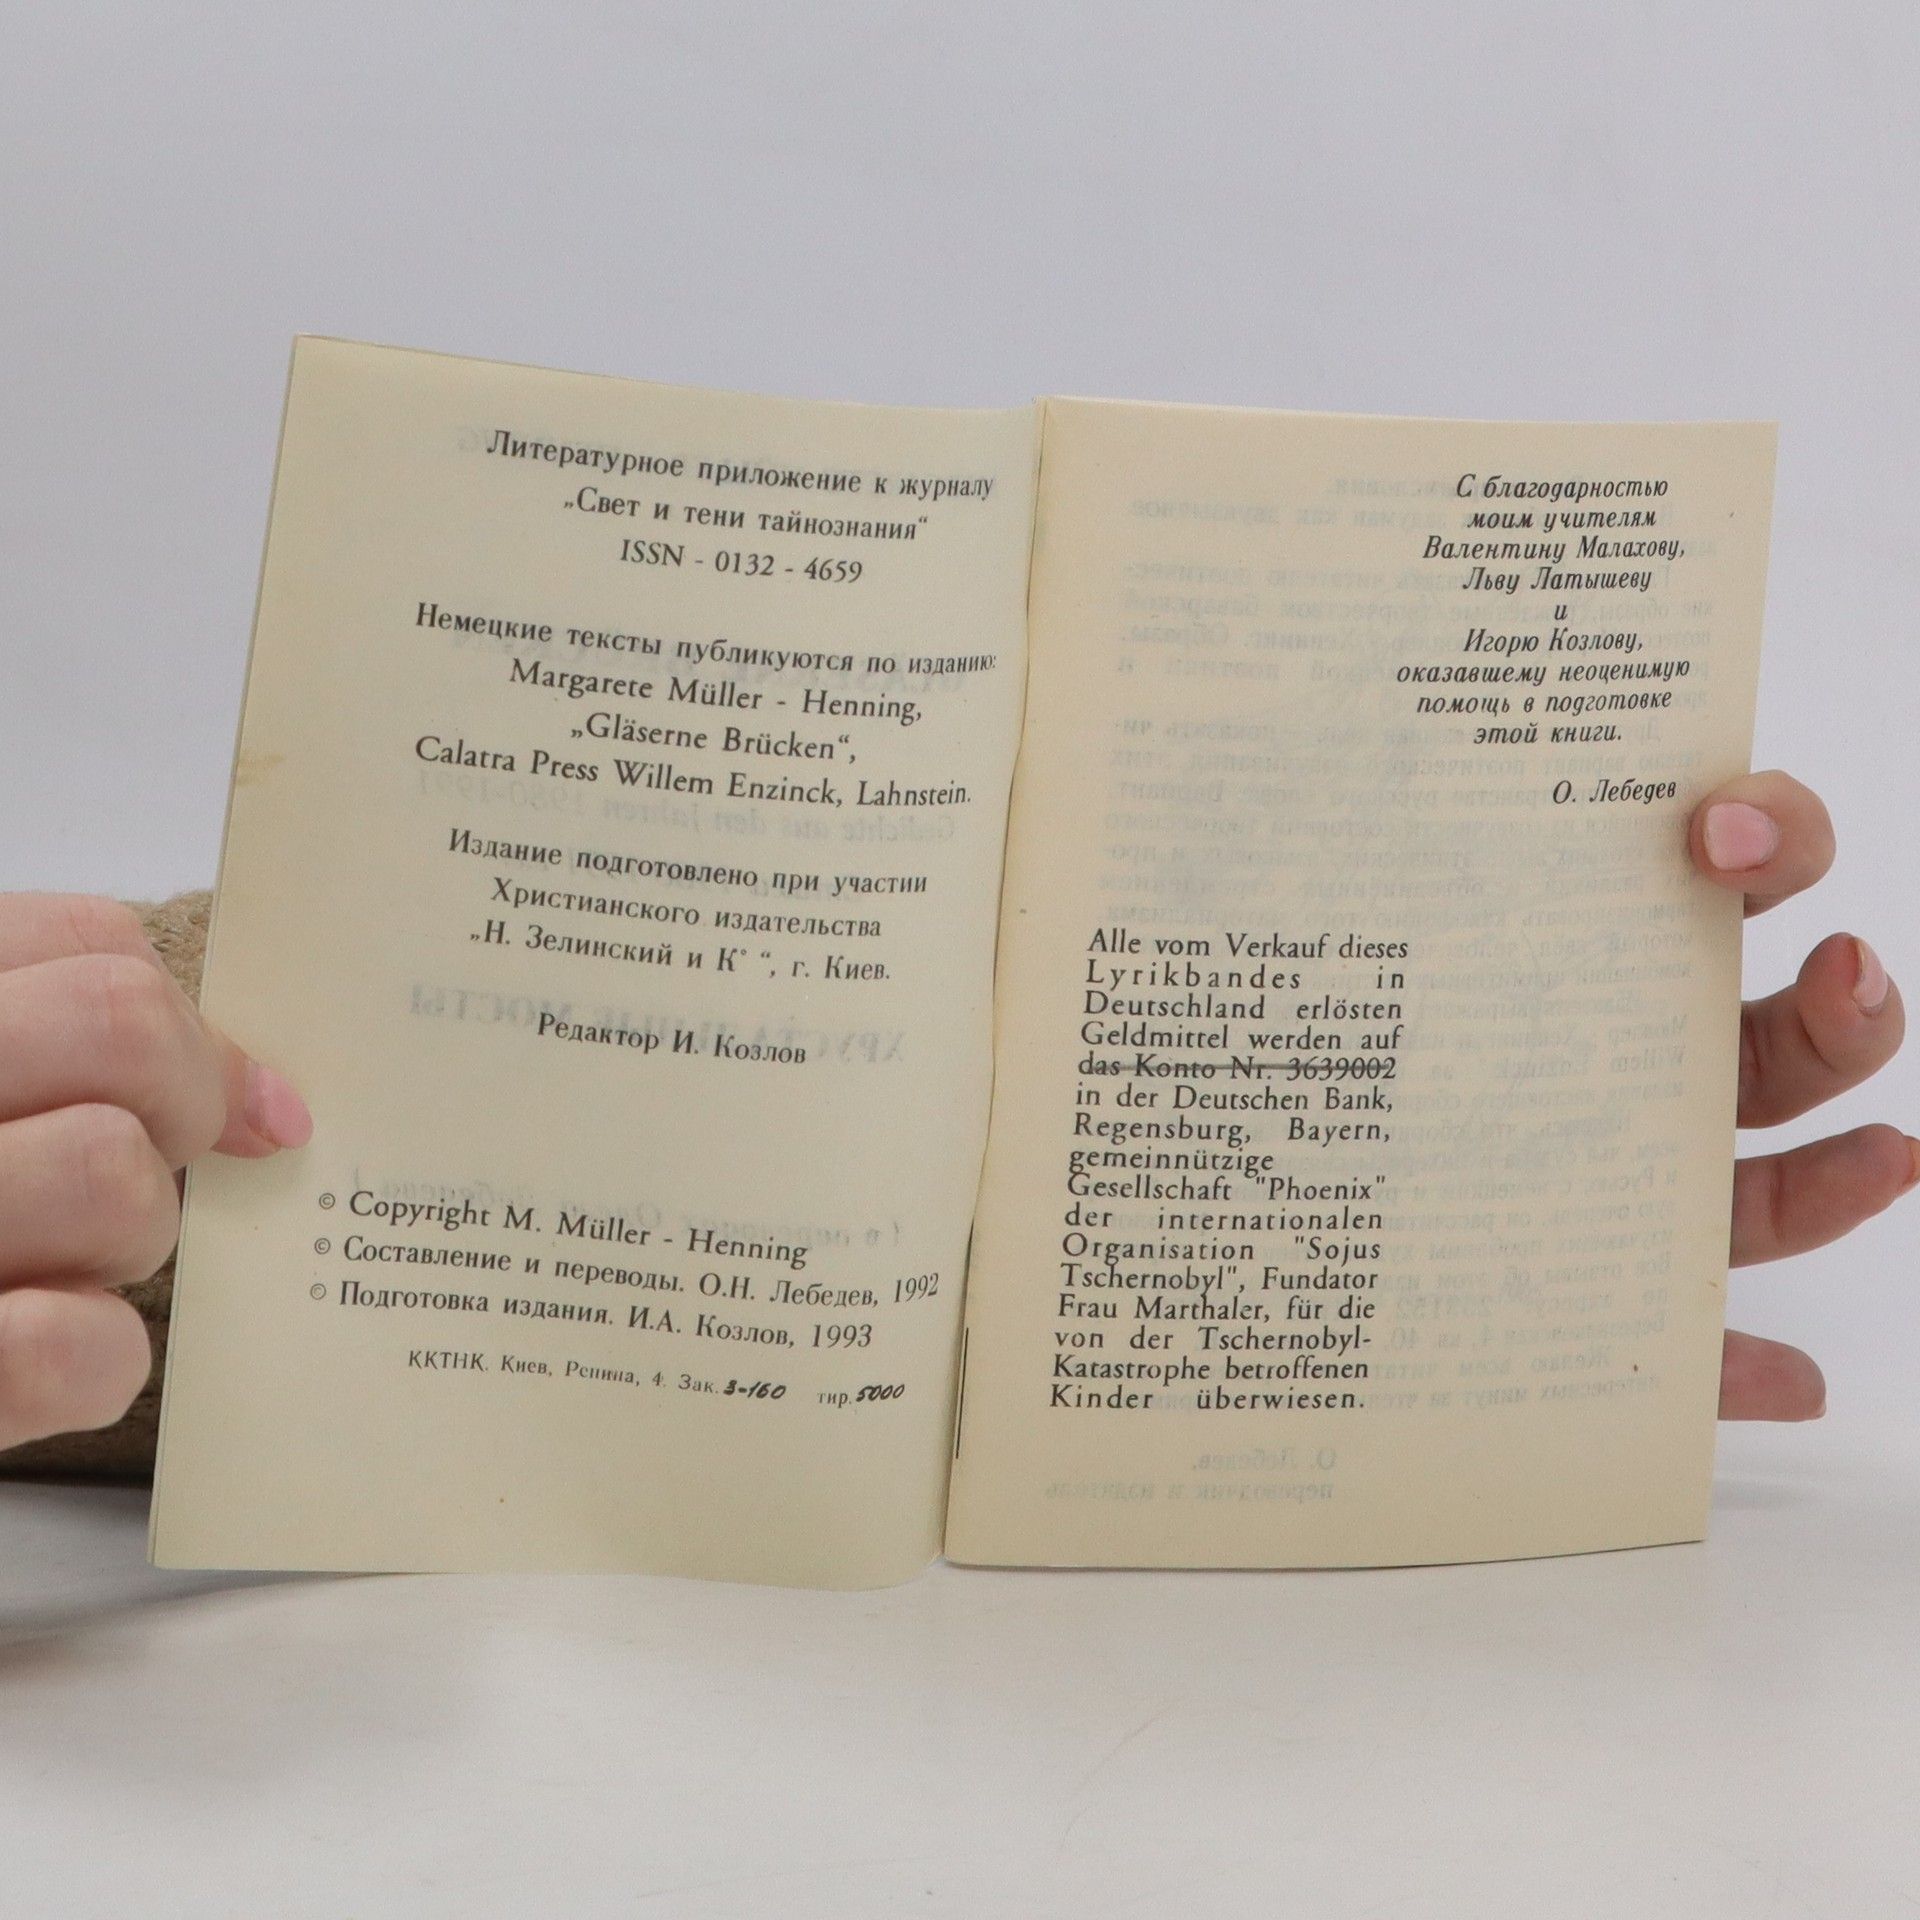 Литературное приложение к журналу
„Свет и тени тайнознания“
ISSN - 0132 - 4659
Немецкие тексты публикуются по изданию:
Margarete Müller - Henning,
„Gläserne Brücken“,
Calatra Press Willem Enzinck, Lahnstein.
Издание подготовлено при участии
Христианского издательства
„Н. Зелинский и К° “, г. Киев.
Редактор И. Козлов
© Copyright M. Müller - Henning
© Составление и переводы. О.Н. Лебедев, 1992
© Подготовка издания. И.А. Козлов, 1993
ККТНК. Киев, Репина, 4. Зак. 3-160 тир. 5000
С благодарностью
моим учителям
Валентину Малахову,
Льву Латышеву
и
Игорю Козлову,
оказавшему неоценимую
помощь в подготовке
этой книги.
О. Лебедев
Alle vom Verkauf dieses
Lyrikbandes in
Deutschland erlösten
Geldmittel werden auf
das Konto Nr. 3639002
in der Deutschen Bank,
Regensburg, Bayern,
gemeinnützige
Gesellschaft "Phoenix"
der internationalen
Organisation "Sojus
Tschernobyl", Fundator
Frau Marthaler, für die
von der Tschernobyl-
Katastrophe betroffenen
Kinder überwiesen.